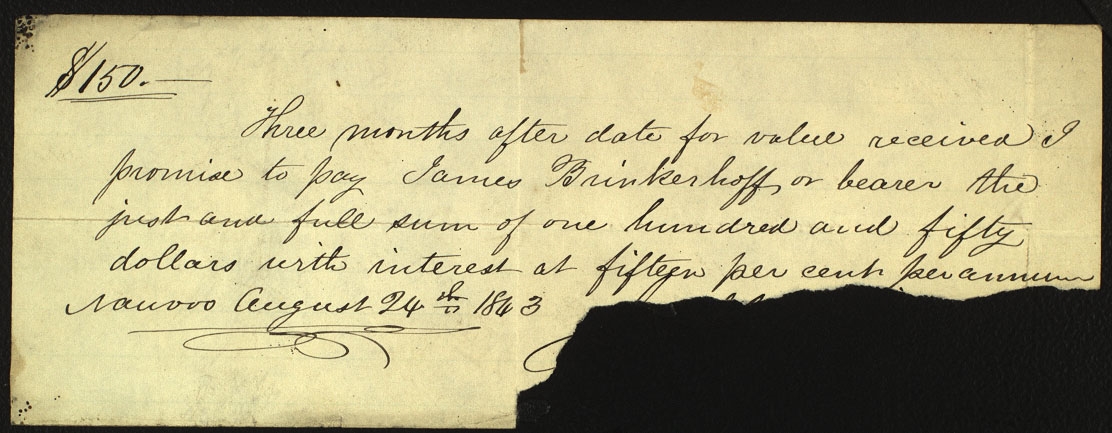 $150.—
Three months after date for value received I
promise to pay James Brinkerhoff, or bearer the
just and full sum of one hundred and fifty
dollars with interest at fifteen per cent per annum
Nauvoo August 24th 1843